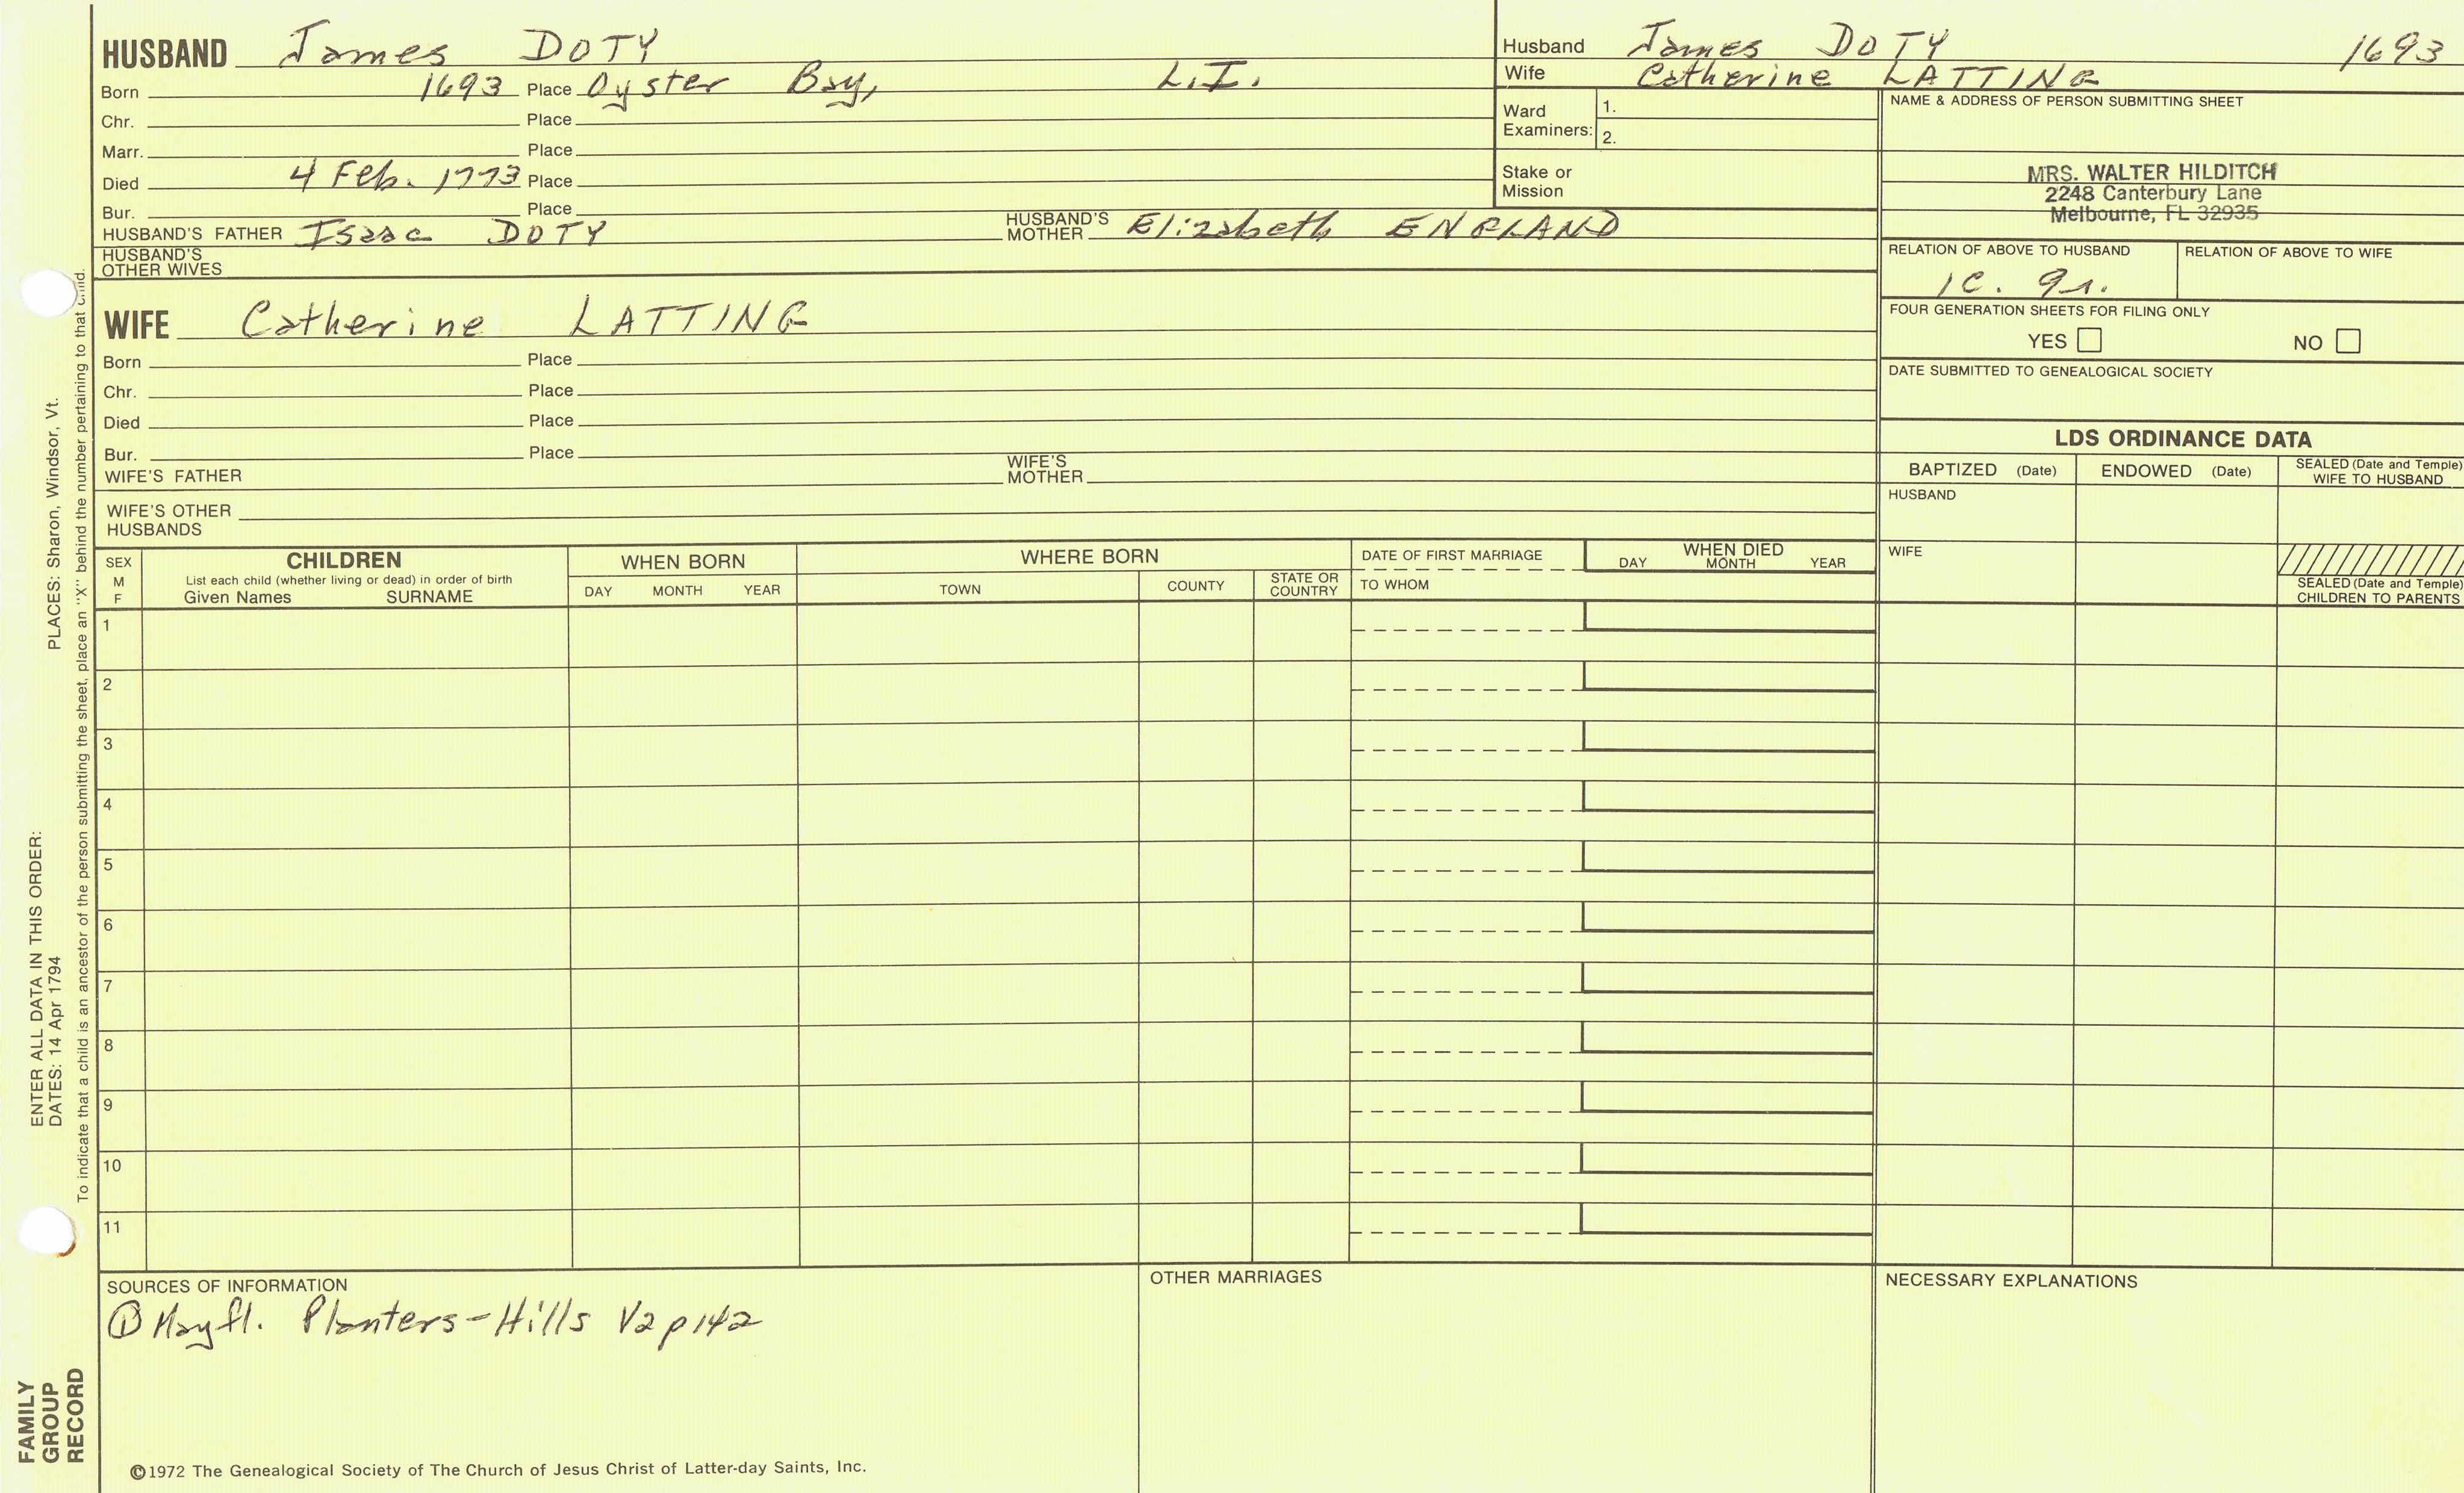 HUSBAND James DOTY
Born 1693 Place Oyster Bay, L.I.
Chr. Place
Marr. Place
Died 4 Feb. 1773 Place
Bur. Place
HUSBAND'S FATHER Isaac DOTY HUSBAND'S MOTHER Elizabeth ENGLAND
HUSBAND'S OTHER WIVES
WIFE Catherine LATTING
Born Place
Chr. Place
Died Place
Bur. Place
WIFE'S FATHER WIFE'S MOTHER
WIFE'S OTHER HUSBANDS
Husband James DOTY 1693
Wife Catherine LATTING
Ward Examiners: 1.
2.
Stake or Mission
NAME & ADDRESS OF PERSON SUBMITTING SHEET
MRS. WALTER HILDITCH
2248 Canterbury Lane
Melbourne, FL 32935
RELATION OF ABOVE TO HUSBAND RELATION OF ABOVE TO WIFE
1C. 9r.
FOUR GENERATION SHEETS FOR FILING ONLY
YES NO
DATE SUBMITTED TO GENEALOGICAL SOCIETY
LDS ORDINANCE DATA
BAPTIZED (Date) ENDOWED (Date) SEALED (Date and Temple) WIFE TO HUSBAND
HUSBAND
WIFE
SEALED (Date and Temple) CHILDREN TO PARENTS
SEX M F
CHILDREN
List each child (whether living or dead) in order of birth
Given Names SURNAME
WHEN BORN
DAY MONTH YEAR
WHERE BORN
TOWN COUNTY STATE OR COUNTRY
DATE OF FIRST MARRIAGE
TO WHOM
WHEN DIED
DAY MONTH YEAR
1
2
3
4
5
6
7
8
9
10
11
SOURCES OF INFORMATION
① Mayfl. Planters-Hills V2 p142
OTHER MARRIAGES
NECESSARY EXPLANATIONS
©1972 The Genealogical Society of The Church of Jesus Christ of Latter-day Saints, Inc.
FAMILY
GROUP
RECORD
ENTER ALL DATA IN THIS ORDER:
DATES: 14 Apr 1794 PLACES: Sharon, Windsor, Vt.
To indicate that a child is an ancestor of the person submitting the sheet, place an "X" behind the number pertaining to that child.